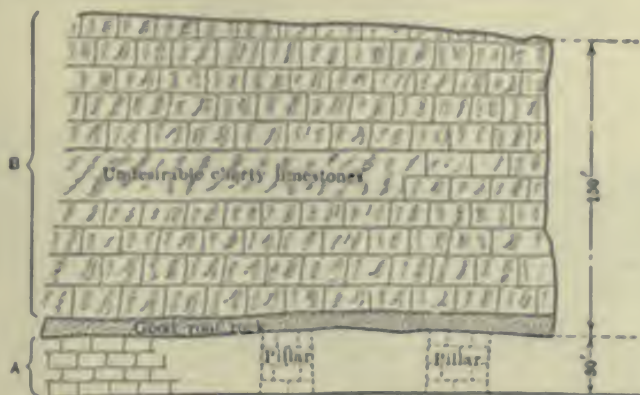 B
Undesirable cherty limestones
150'
Good roof rock
A
Pillar
Pillar
30'